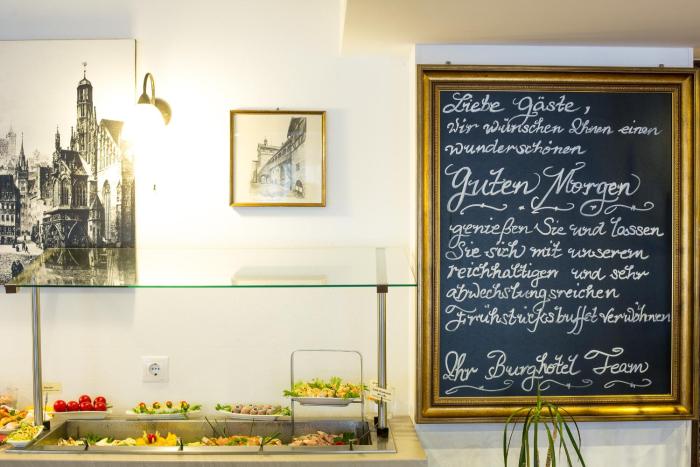 Liebe Gäste,
wir wünschen Ihnen einen
wunderschönen
Guten Morgen
genießen Sie und lassen
Sie sich mit unserem
reichhaltigen und sehr
abwechslungsreichen
Frühstücksbuffet verwöhnen
Ihr Burghotel Team